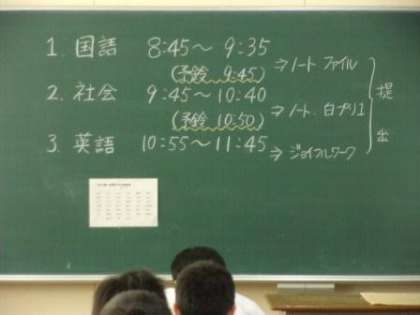 1. 国語 8:45～ 9:35
(予鈴 9:45) ⇒ノート ファイル
2. 社会 9:45～10:40
(予鈴 10:50) ⇒ノート、白プリ
3. 英語 10:55～11:45
⇒ジョイフルワーク
提出